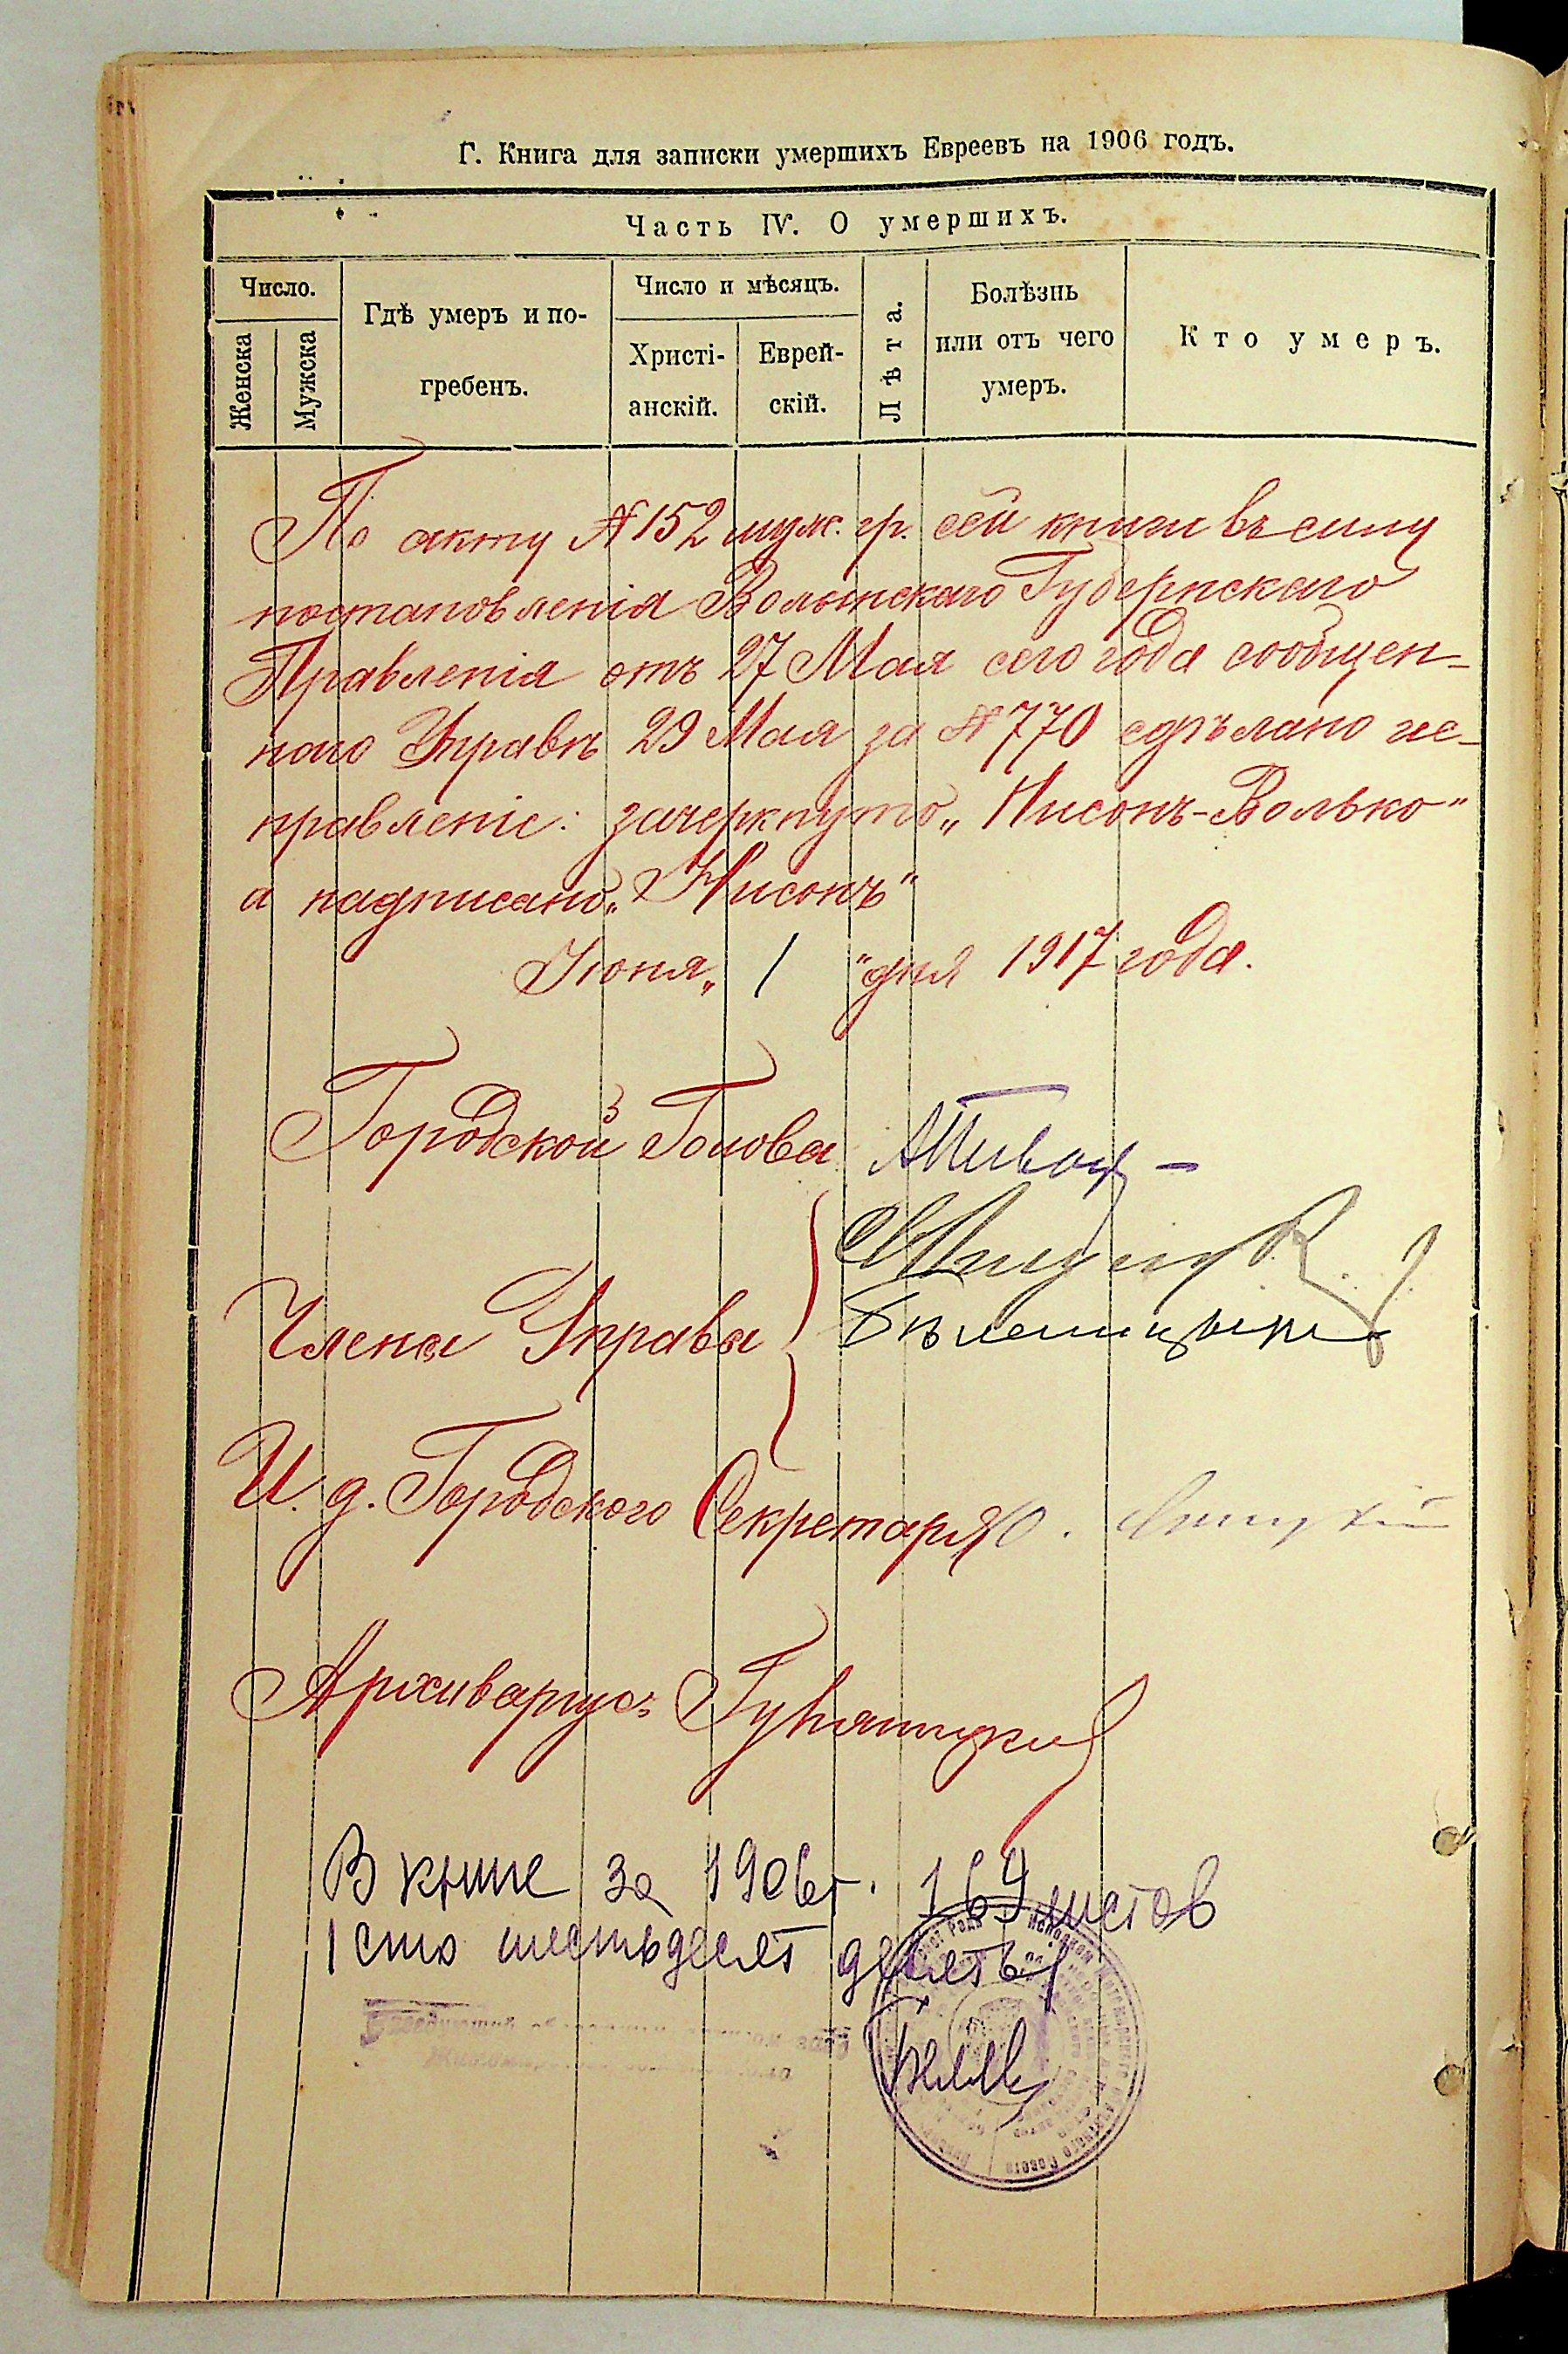 Г. Книга для записки умершихъ Евреевъ на 1906 годъ.
Часть IV. О умершихъ.
Число.
Женска
Мужска
Гдѣ умеръ и по-
гребенъ.
Число и мѣсяцъ.
Христі-
анскій.
Еврей-
скій.
Лѣта.
Болѣзнь
или отъ чего
умеръ.
Кто умеръ.
По акту № 152 муж. гр. сей книги въ силу
постановленія Волынскаго Губернскаго
Правленія отъ 27 Мая сего года сообщен-
ного Управѣ 29 Мая за № 770 сдѣлано ис-
правленіе: зачеркнуто „Нисонъ-Волько"
а надписано „Нисонъ"
Июня „ 1 " дня 1917 года.
Городской Голова
Члены Управы
И. д. Городского Секретаря
Архиваріусъ
В книге за 1906 г. 169 листов
(сто шестьдесят девять)